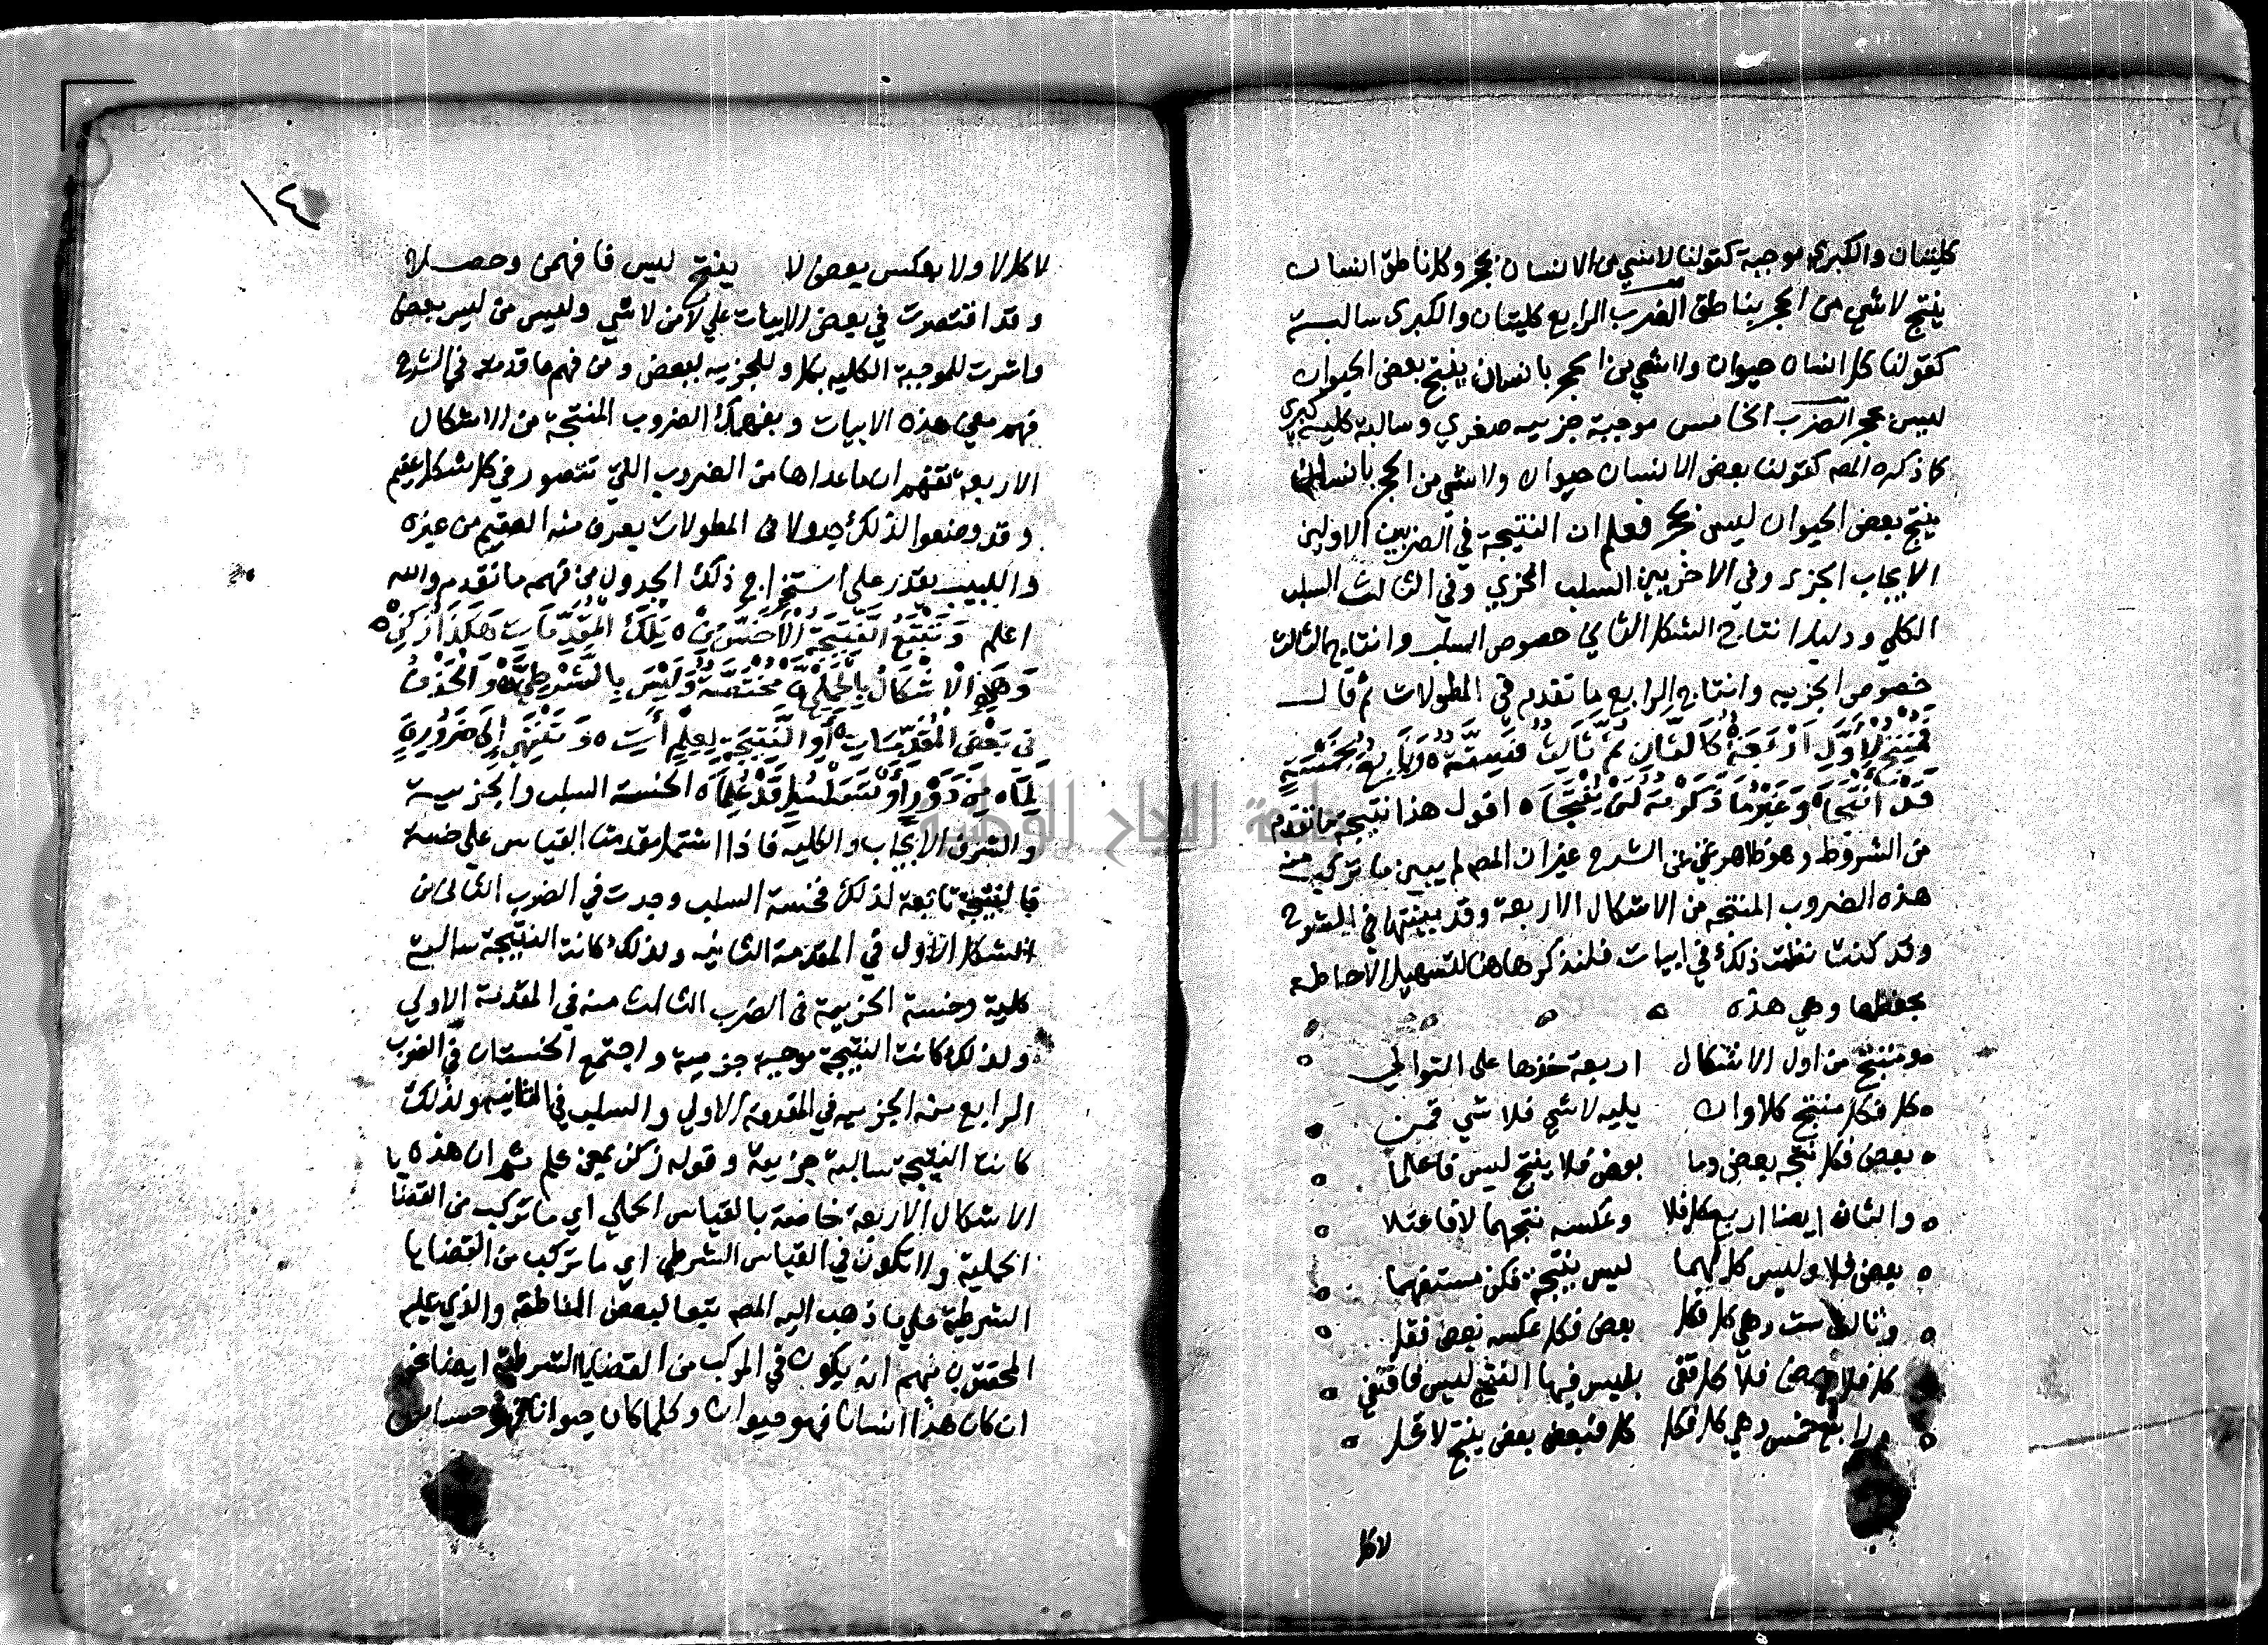 كليتان والكبري موجبة كقولنا لاشي من الانسان بحجر وكل ناطق انسان
ينتج لاشي من الحجر بناطق الضرب الرابع كليتان والكبرى سالبة
كقولنا كل انسان حيوان ولاشي من الحجر بانسان ينتج بعض الحيوان
ليس بحجر الضرب الخامس موجبة جزييه صغري وسالبة كليه كبري
كما ذكره المص كقولنا بعض الانسان حيوان ولاشي من الحجر بانسان
ينتج بعض الحيوان ليس بحجر فعلم ان النتيجة في الضربين الاولين
الايجاب الجزي وفي الاخرين السلب الجزي وفي الثالث السلب
الكلي ودليل انتاج الشكل الثاني خصوص السلب وانتاج الثالث
خصوص الجزييه وانتاج الرابع ما تقدم في المطولات ثم قال
فمنتج لاول اربعة كالثان ثم ثالث فستة ورابع بخمسة
قد انتجا وغير ما ذكرته لن ينتجا اقول هذا نتيجة ما تقدم
من الشروط وهو ظاهر غني عن الشرح غير ان المص لم يبين ما تركب منه
هذه الضروب المنتجه من الاشكال الاربعة وقد بينتها في الشرح
وقد كنت نظمت ذلك في ابيات فلنذكرها هنا لتسهيل الاحاطه
بحفظها وهي هذه
ومنتج من اول الاشكال اربعة خذها على التوالي
كل فكل منتج كلا وان يليه لاشي فلا شي قمن
بعض فكل نتجه بعض وما بعض فلا ينتج ليس فاعلما
والثان ايضا اربع كل فلا وعكسه نتجهما لا فاعقلا
بعض فلا وليس كل لهما ليس نتيجة فكن مستفهما
وثالث ست وهي كل فكل بعض فكل عكسه بعض فقل
كل فلا بعض فلا كل قفي بليس فيها النتج ليس فاقتفي
ورابع خمس وهي كل فكل كل فبعض بعض ينتج لا تحل
لا كل
١٤
لا كل لا ولا بعكس بعض لا ينتج ليس فافهمن وحصلا
وقد اقتصرت في بعض الابيات علي لا من لاشي وليس من ليس بعض
واشرت للموجبة الكليه بكل وللجزييه ببعض ومن فهم ما قدمته في الشرح
فهم معني هذه الابيات وبفهمك الضروب المنتجة من الاشكال
الاربعة تفهم ان ما عداها من الضروب التي تتصور في كل شكل عقيم
وقد وضعوا لذلك جدولا في المطولات يعرف منه العقيم من غيره
واللبيب يقدر على استخراج ذلك الجدول من فهمه ما تقدم والله
اعلم وتتبع النتيجة الاخس من تلك المقدمات هكذا زكن
وهذه الاشكال بالحملي مختصة وليس بالشرطي والحذف
في بعض المقدمات او النتيجة لعلم ات وتنتهي الى ضرورة
لما من دور او تسلسل قد علما الخسة السلب والجزيية
والشرف الايجاب والكليه فاذا اشتمل مقدمتا القياس على خسة
فالنتيجة تابعة لذلك فخسة السلب وجدت في الضرب الثاني من
الشكل الاول في المقدمة الثانيه ولذلك كانت النتيجة سالبة
كلية وخسة الجزيية في الضرب الثالث منه في المقدمة الاولي
ولذلك كانت النتيجة موجبه جزيية واجتمع الخستان في الضرب
الرابع منه الجزييه في المقدمة الاولي والسلب في الثانيه ولذلك
كانت النتيجة سالبة جزيية وقوله زكن بمعنى علم ثم ان هذه
الاشكال الاربعة خاصة بالقياس الحملي اي ما تركب من القضايا
الحملية ولا تكون في القياس الشرطي اي ما تركب من القضايا
الشرطية علي ما ذهب اليه المص تبعا لبعض المناطقه والذي عليه
المحققون منهم انه يكون في المركب من القضايا الشرطية ايضا نحو
ان كان هذا انسان فهو حيوان وكلما كان حيوانا فهو حساس
جامعة النجاح الوطنية